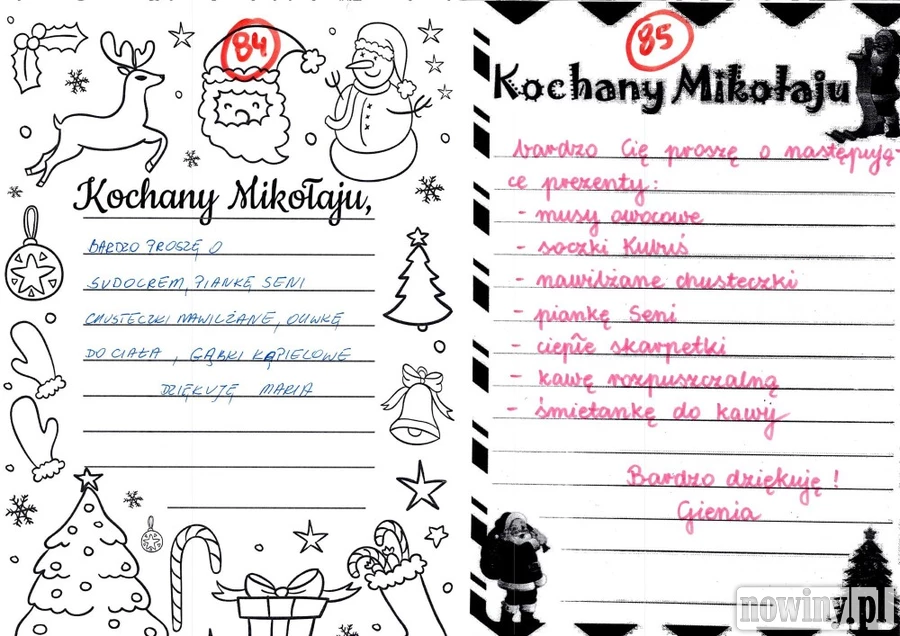 84
Kochany Mikołaju,
BARDZO PROSZĘ O
SUDOCREM, PIANKĘ SENI
CHUSTECZKI NAWILŻANE, OLIWKĘ
DO CIAŁA, GĄBKI KĄPIELOWE
DZIĘKUJĘ MARIA
85
Kochany Mikołaju
bardzo Cię proszę o następują-
ce prezenty:
- musy owocowe
- soczki Kubuś
- nawilżane chusteczki
- piankę Seni
- ciepłe skarpetki
- kawę rozpuszczalną
- śmietankę do kawy
Bardzo dziękuję!
Gienia
nowiny.pl